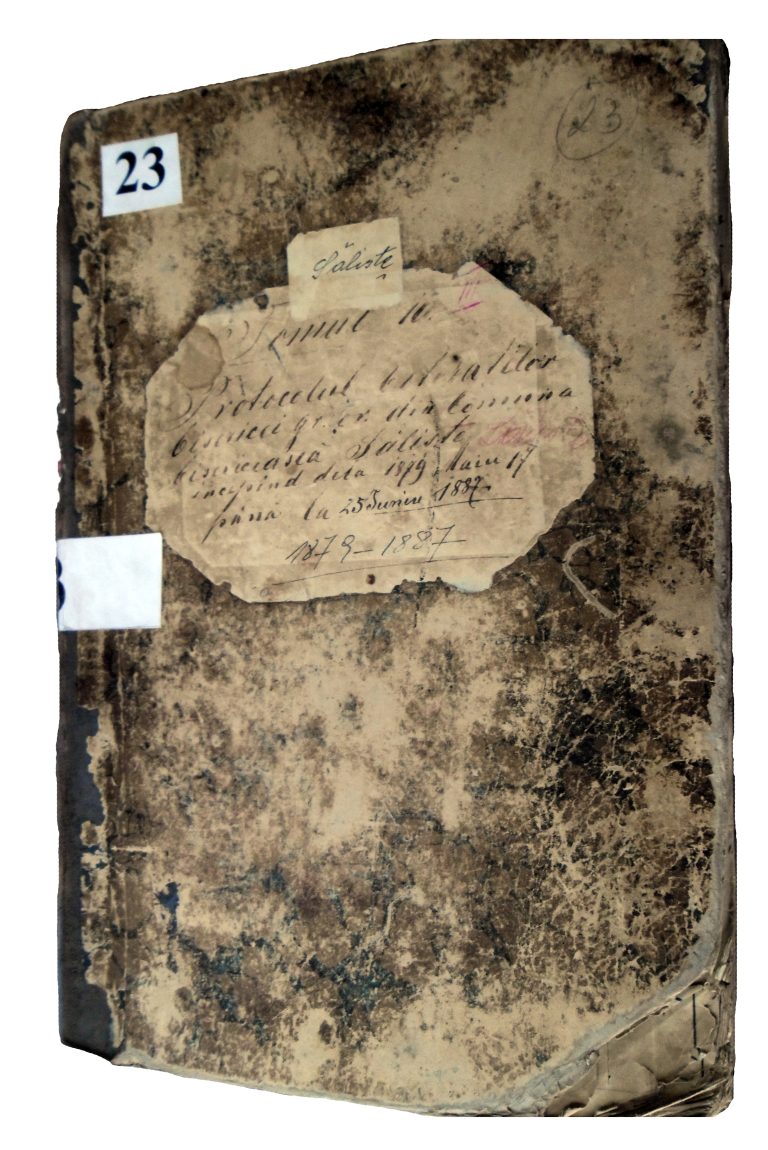 23
23
Săliște
Tomul IV.
III
Protocolul botezaților
bisericei gr. or. din comuna
bisericească Săliște
incepênd dela 1879, Maiu 17
până la 25 Juniu 1887.
1879-1887